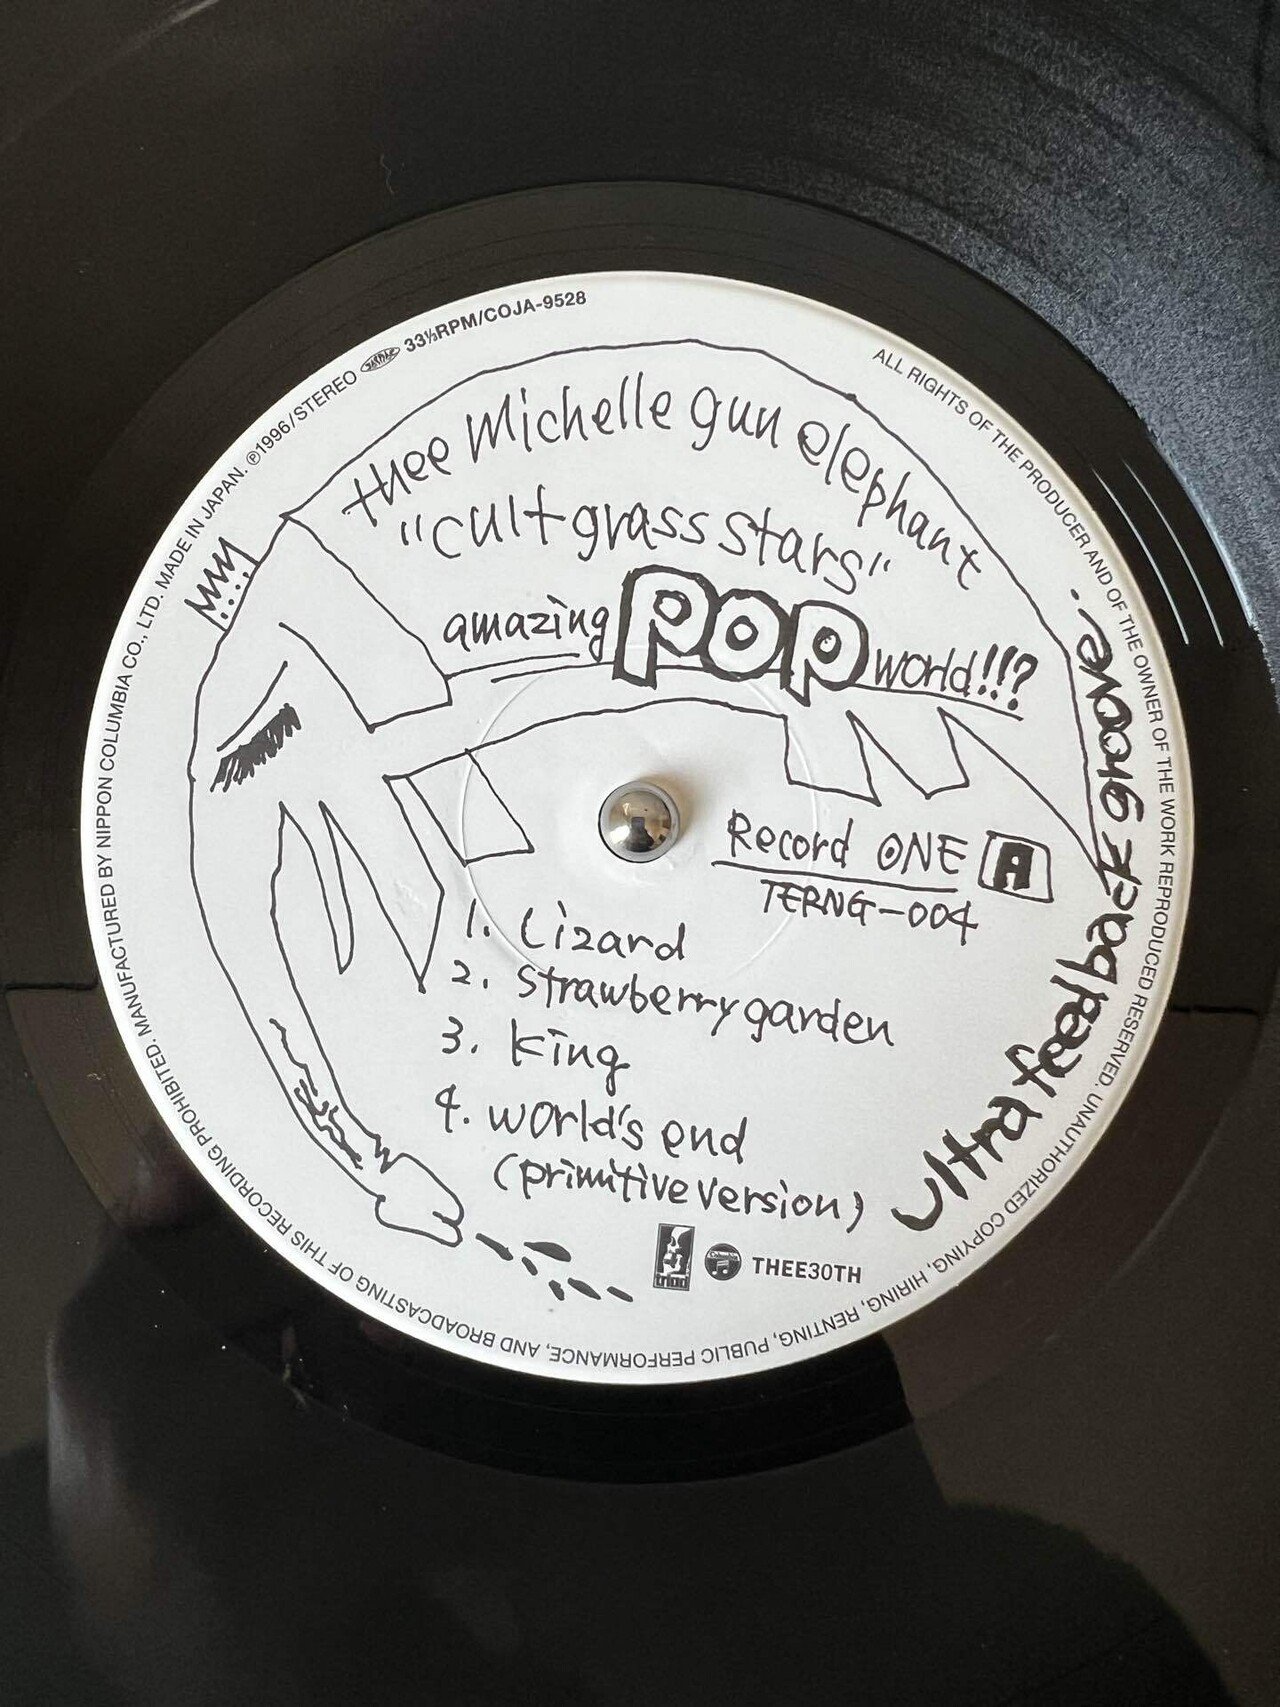 MANUFACTURED BY NIPPON COLUMBIA CO., LTD. MADE IN JAPAN. ℗1996/STEREO JASRAC 33⅓RPM/COJA-9528
ALL RIGHTS OF THE PRODUCER AND OF THE OWNER OF THE WORK REPRODUCED RESERVED. UNAUTHORIZED COPYING, HIRING, RENTING, PUBLIC PERFORMANCE, AND BROADCASTING OF THIS RECORDING PROHIBITED.
thee Michelle gun elephant
"cult grass stars"
amazing POP world!!?
Record ONE A
TERNG-004
1. Lizard
2. Strawberry garden
3. King
4. world's end
(primitive version)
ultra feed back groove.
triad Columbia THEE30TH